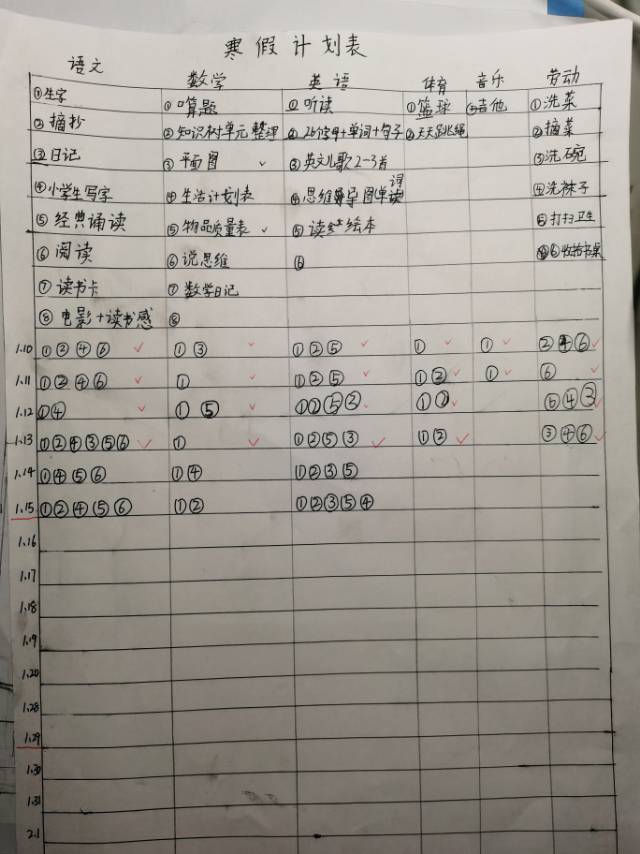 寒假计划表
语文 数学 英语 体育 音乐 劳动
①生字 ①口算题 ①听读 ①篮球 ①吉他 ①洗菜
②摘抄 ②知识树单元整理 ②26字母+单词+句子 ②天天跳绳 ②摘菜
③日记 ③平面图 ✓ ③英文儿歌2-3首 ③洗碗
④小学生写字 ④生活计划表 ④思维导图单词 ④洗袜子
⑤经典诵读 ⑤物品质量表 ✓ ⑤读绘本 ⑤打扫卫生
⑥阅读 ⑥说思维 ⑥ ⑥收拾书桌
⑦读书卡 ⑦数学日记
⑧电影+读书感 ⑧
1.10 ①②④⑥ ✓ ①③ ✓ ①②⑤ ✓ ① ✓ ① ✓ ②④⑥ ✓
1.11 ①②④⑥ ✓ ① ✓ ①②⑤ ✓ ①② ✓ ① ✓ ⑥ ✓
1.12 ①④ ✓ ①⑤ ✓ ①②⑤③ ✓ ①② ✓ ⑤④③ ✓
1.13 ①②④③⑤⑥ ✓ ① ✓ ①②⑤③ ✓ ①② ✓ ③④⑥ ✓
1.14 ①④⑤⑥ ①④ ①②③⑤
1.15 ①②④⑤⑥ ①② ①②③⑤④
1.16
1.17
1.18
1.19
1.20
1.28
1.29
1.30
1.31
2.1